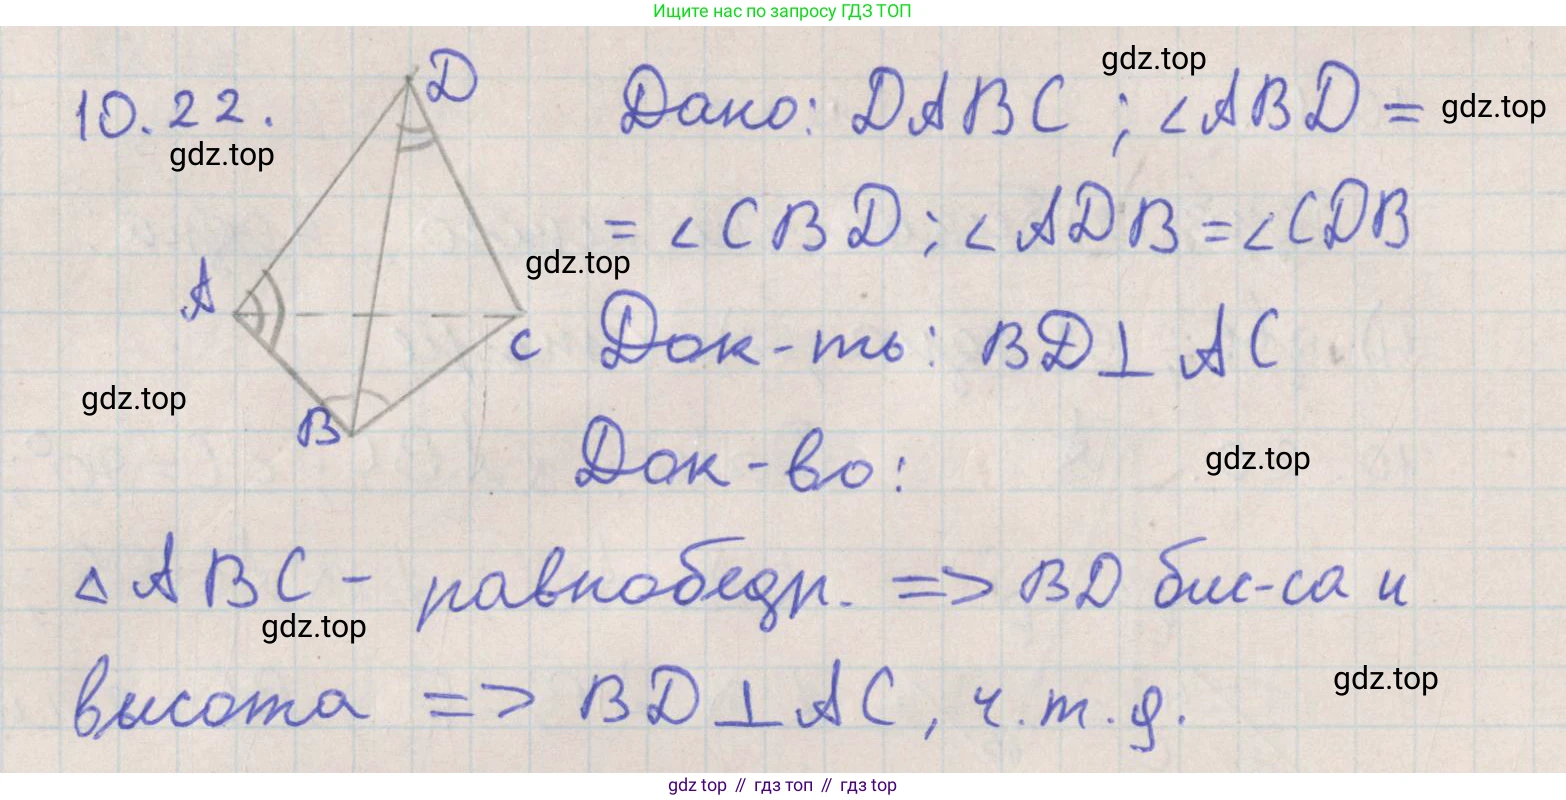 Ищите нас по запросу ГДЗ ТОП
10.22.
D
Дано: DABC ; ∠ABD =
gdz.top
gdz.top
gdz.top
= ∠CBD ; ∠ADB = ∠CDB
gdz.top
A
C
Док-ть: BD⊥AC
gdz.top
B
Док-во:
gdz.top
△ABC - равнобедр. => BD бис-са и
gdz.top
высота => BD⊥AC, ч.т.д.
gdz.top
gdz top // гдз топ // gdz top